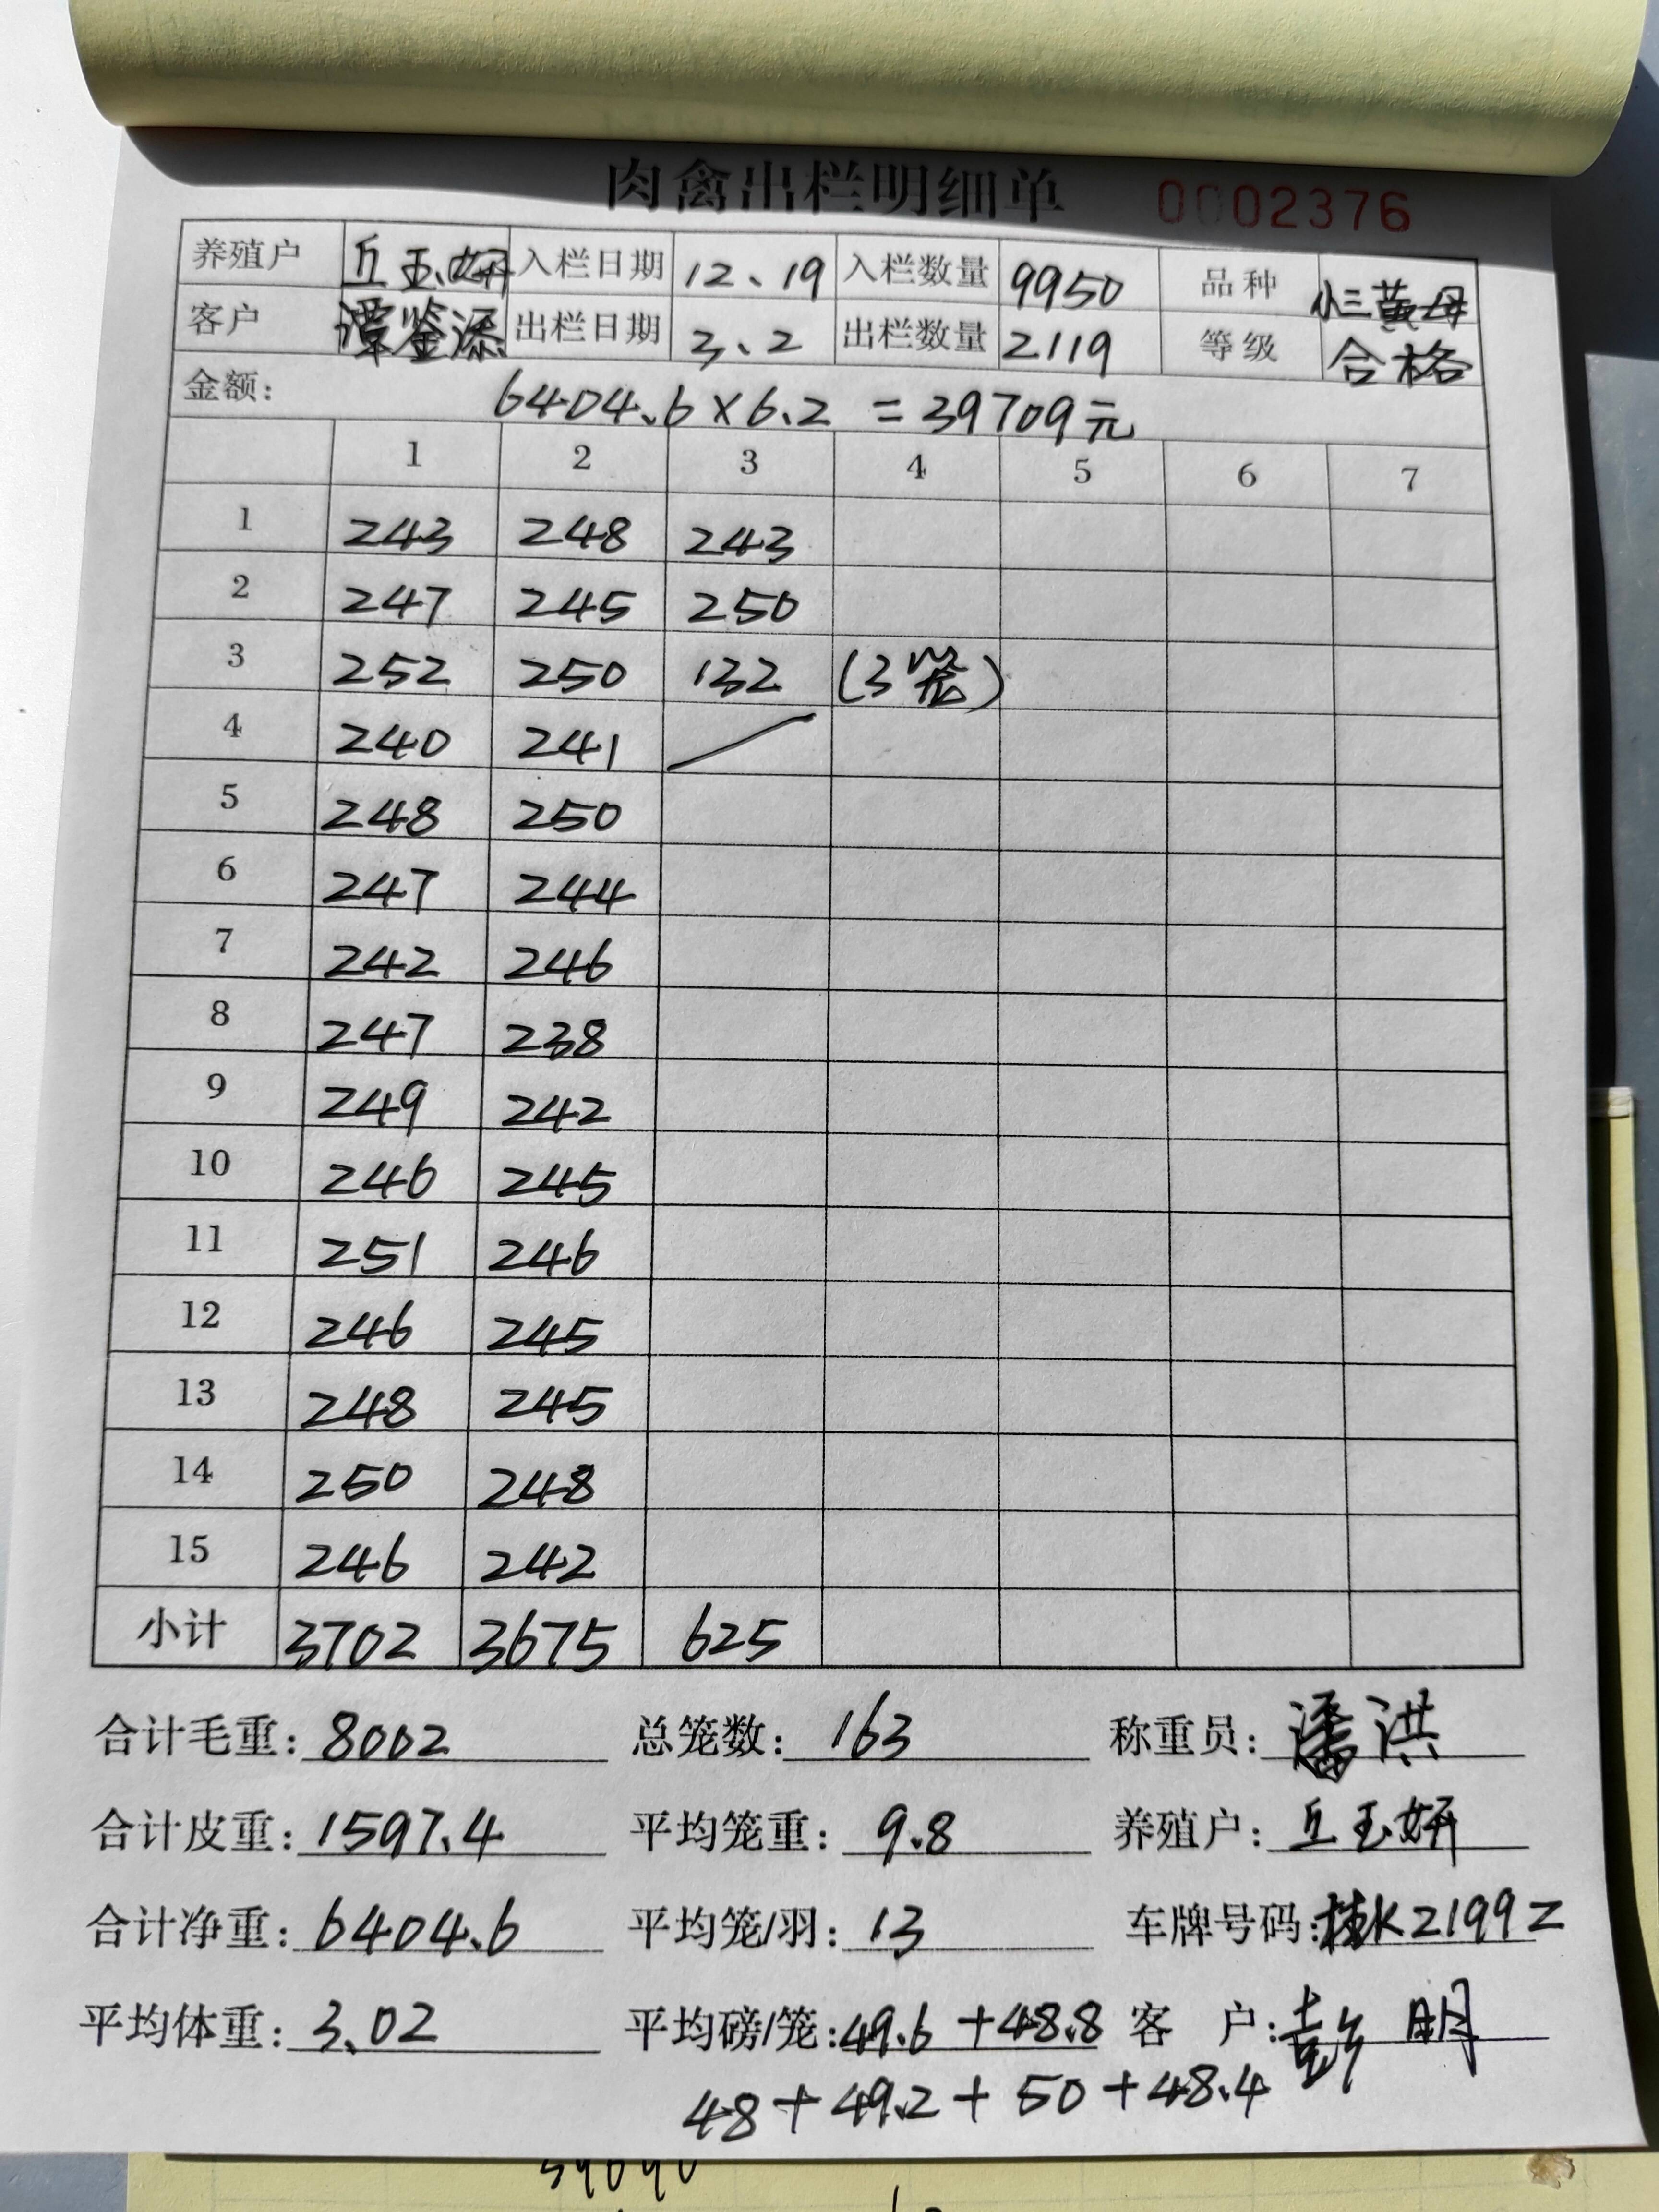 肉禽出栏明细单 0002376
养殖户 丘玉妍 入栏日期 12、19 入栏数量 9950 品种 小三黄母
客户 谭鉴添 出栏日期 3、2 出栏数量 2119 等级 合格
金额: 6404.6×6.2 =39709元
1 2 3 4 5 6 7
1 243 248 243
2 247 245 250
3 252 250 132 (3笼)
4 240 241
5 248 250
6 247 244
7 242 246
8 247 238
9 249 242
10 246 245
11 251 246
12 246 245
13 248 245
14 250 248
15 246 242
小计 3702 3675 625
合计毛重: 8002 总笼数: 163 称重员: 潘洪
合计皮重: 1597.4 平均笼重: 9.8 养殖户: 丘玉妍
合计净重: 6404.6 平均笼/羽: 13 车牌号码: 桂K2199Z
平均体重: 3.02 平均磅/笼: 49.6 +48.8 客 户: 彭明
48+49.2+50+48.4